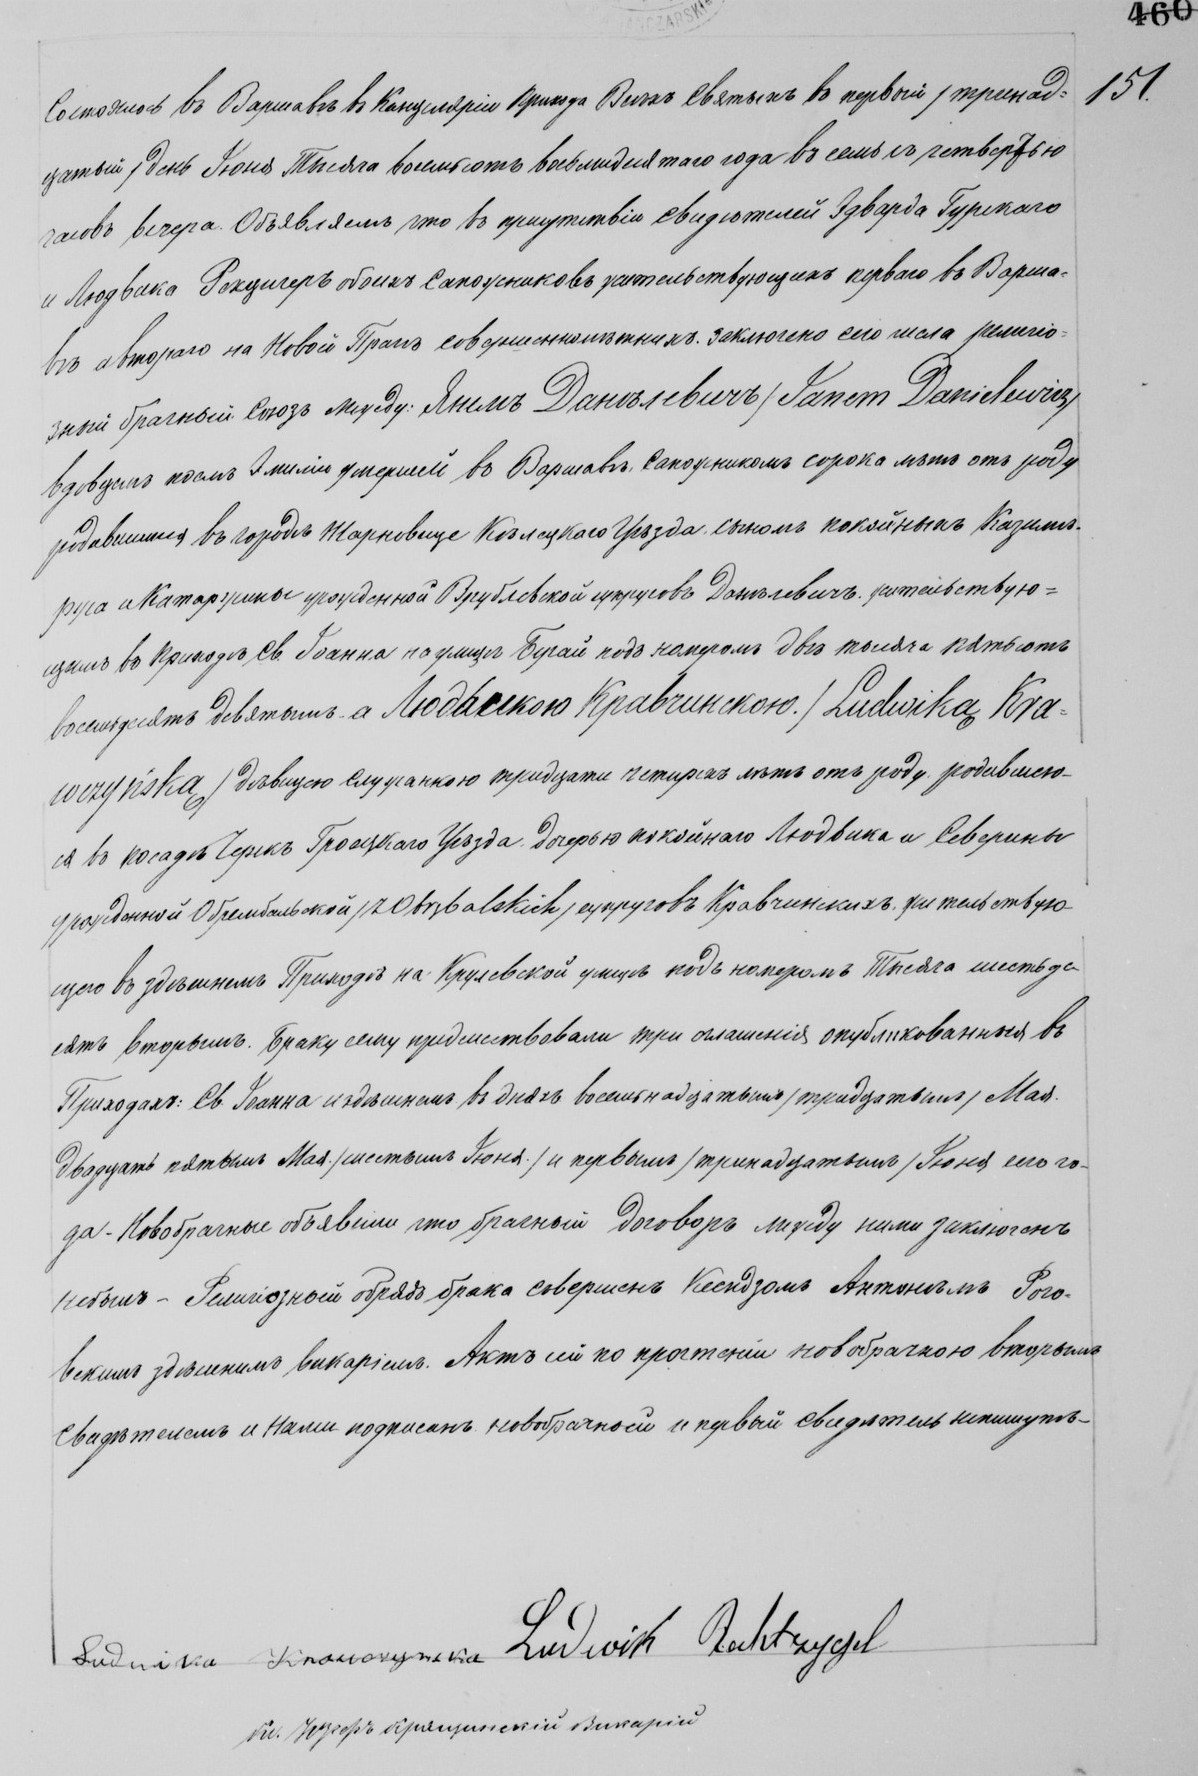 460
151.
Состоялось въ Варшавѣ въ Канцеляріи Прихода Всѣхъ Святыхъ въ первый / тринад=
цатый / день Іюня Тысяча восемьсотъ восьмидесятаго года въ семь съ четвертью
часовъ вечера. Объявляемъ что въ присутствіи свидѣтелей Эдварда Гурскаго
и Людвика Рехцигеръ обоихъ Сапожниковъ жительствующихъ перваго въ Варша-
вѣ а втораго на Новой Прагѣ совершеннолѣтнихъ. заключено сего числа религіо=
зный брачный Союзъ между: Яномъ Данѣлевичъ / Janem Danielewicz /
вдовцемъ послѣ Эмиліи умершей въ Варшавѣ, Сапожникомъ сорока лѣтъ отъ роду
родившимся въ городѣ Жарновице Кѣлецкаго Уѣзда. сыномъ покойныхъ Казимѣ-
ржа и Катаржины урожденной Врублевской супруговъ Данѣлевичъ. жительствую=
щимъ въ приходѣ Св. Іоанна на улицѣ Бугай подъ номеромъ двѣ тысяча пятьсотъ
восемьдесятъ девятымъ. а Людвикою Кравчинскою. / Ludwiką Kra=
wczyńską / дѣвицею служанкою тридцати четырехъ лѣтъ отъ роду. родившею-
ся въ посадѣ Черскъ Гроецкаго Уѣзда. дочерью покойнаго Людвика и Северины
урожденной Обрембальской / z Obrębalskich / супруговъ Кравчинскихъ. жительствую-
щею въ здѣшнемъ Приходѣ на Крулевской улицѣ подъ номеромъ Тысяча шестьде-
сятъ вторымъ. Браку сему предшествовали три оглашенія опубликованныя въ
Приходахъ: Св Іоанна и здѣшнемъ въ дняхъ восемнадцатымъ / тридцатымъ / Мая.
двадцать пятымъ Мая / шестымъ Іюня. / и первымъ / тринадцатымъ / Іюня сего го-
да - Новобрачные объявили что брачный договоръ между ними заключенъ
небылъ - Религіозный обрядъ брака совершенъ Ксендзомъ Антонѣмъ Рого-
вскимъ здѣшнимъ викаріемъ. Актъ сей по прочтеніи новобрачною вторымъ
свидѣтелемъ и Нами подписанъ. новобрачной и первый свидѣтель непишутъ-
Ludwika Krawczynska Ludwik Rehtzygel
Кс. Юзефъ Викарій